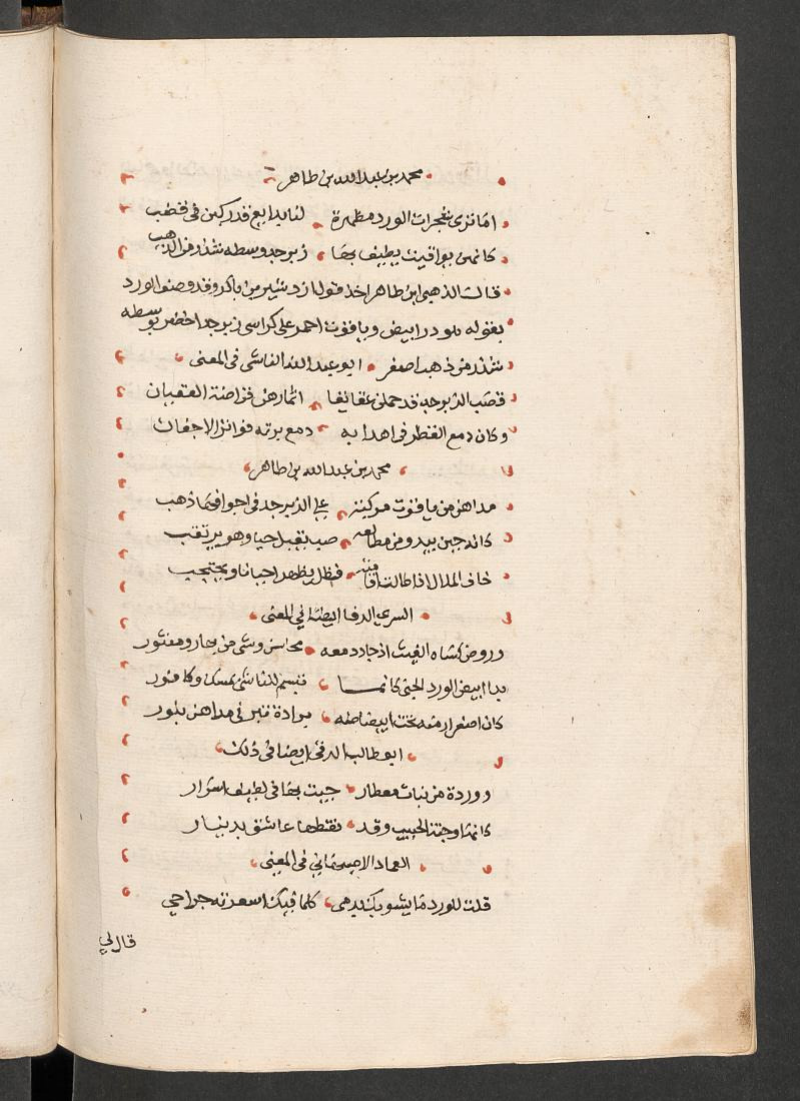 محمد بن عبد الله بن طاهر
اما ترى شجرات الورد مظهرة لنا بدايع قد ركبن في قضب
كانهن يواقيت يطيف بها زبرجد وسطه شذر من الذهب
قالت الذهبي ابن طاهر اخذ قول ازدشير بن بابك وقد وصف الورد
بقوله هو در ابيض وياقوت احمر على كراسي زبرجد اخضر بوسطه
شذر من ذهب اصفر ابو عبد الله الناشي في المعنى
قضب الزبرجد قد حملن عقائقا اثمارهن قراضة العقيان
وكان دمع القطر في اهدابه دمع برته فواتر الاجفان
محمد بن عبد الله بن طاهر
مداهن من ياقوت مركبة على الزبرجد في اجوافها ذهب
كانه حين يبدو من مطالعه صب يقبل حبا وهو يرتقب
خاف الملال اذا طالت اقامته فظل يظهر احيانا ويحتجب
السري الرفا ايضا في المعنى
وروض كساه الغيث اذ جاد دمعه محاسن وشي من بهار ومنثور
بدا ابيض الورد الجني كانما تبسم للناشي بمسك وكافور
كان اصفرارا منه تحت ابيضاضه برادة تبر في مداهن بلور
ابو طالب الرقي ايضا في ذلك
ووردة من بنات معطار حييت بها في لطيف اسرار
كانها وجنة الحبيب وقد نقطها عاشق بدينار
العماد الاصبهاني في المعنى
قلت للورد ما بشوكك يدمى كلما فيك اسعرته جراحي
قال لي